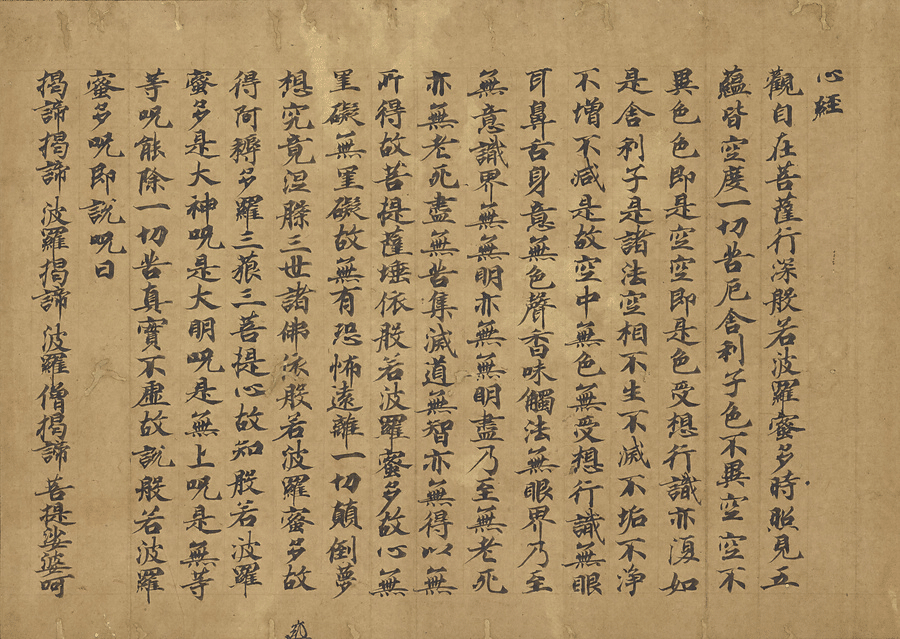 心経
觀自在菩薩行深般若波羅蜜多時照見五
蘊皆空度一切苦厄舎利子色不異空空不
異色色即是空空即是色受想行識亦復如
是舎利子是諸法空相不生不滅不垢不浄
不増不減是故空中無色無受想行識無眼
耳鼻舌身意無色聲香味觸法無眼界乃至
無意識界無無明亦無無明盡乃至無老死
亦無老死盡無苦集滅道無智亦無得以無
所得故菩提薩埵依般若波羅蜜多故心無
罣礙無罣礙故無有恐怖遠離一切顛倒夢
想究竟涅槃三世諸佛依般若波羅蜜多故
得阿耨多羅三藐三菩提心故知般若波羅
蜜多是大神呪是大明呪是無上呪是無等
等呪能除一切苦真實不虚故説般若波羅
蜜多呪即説呪曰
揭諦揭諦 波羅揭諦 波羅僧揭諦 菩提娑婆呵